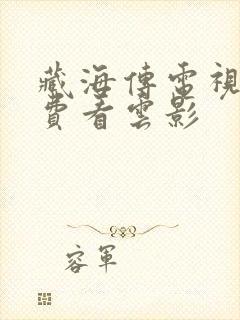 藏海傳電視
費看雲影
容軍